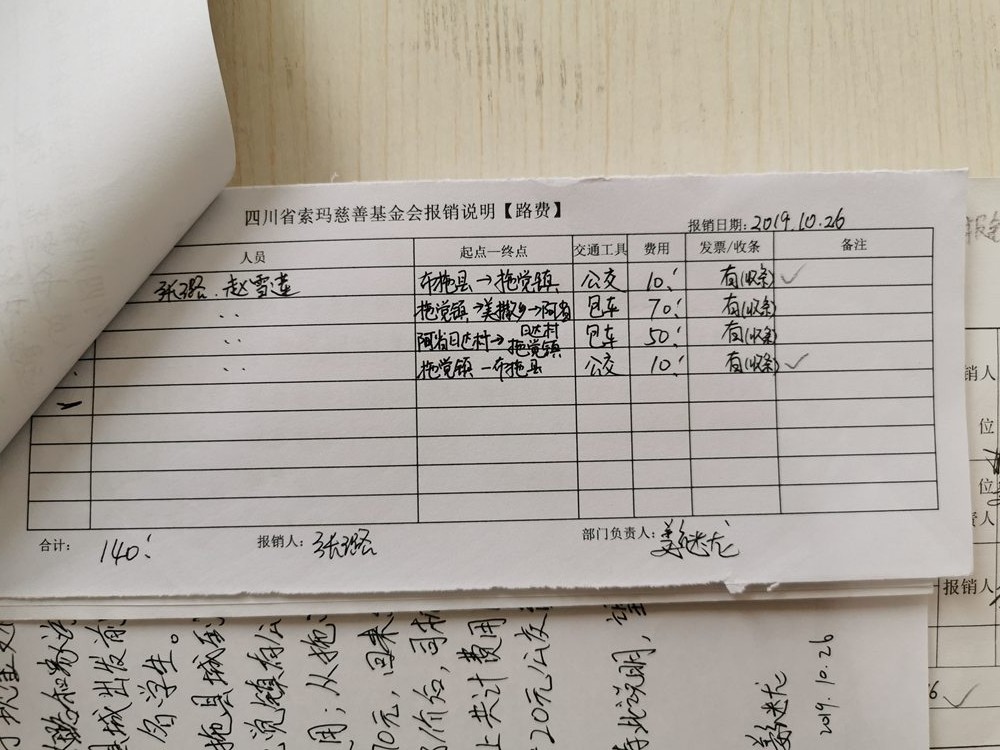 四川省索玛慈善基金会报销说明【路费】
报销日期：2019.10.26
人员 起点—终点 交通工具 费用 发票/收条 备注
张璐、赵雪莲 布拖县→拖觉镇 公交 10 有(收条) ✓
拖觉镇→美撒乡→阿省 包车 70 有(收条)
阿省日达村→日达村拖觉镇 包车 50 有(收条)
拖觉镇—布拖县 公交 10 有(收条) ✓
合计： 140 报销人：张璐 部门负责人：
报销
销人
位
位
责人
报销人
6 ✓
城出发前
名学生。
拖县城到
觉镇有公
用；从拖
70元，回来
价后，司机
上共计费用
20元公交
特此说明，望
2019.10.26